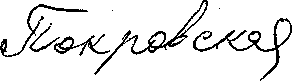 Покровская